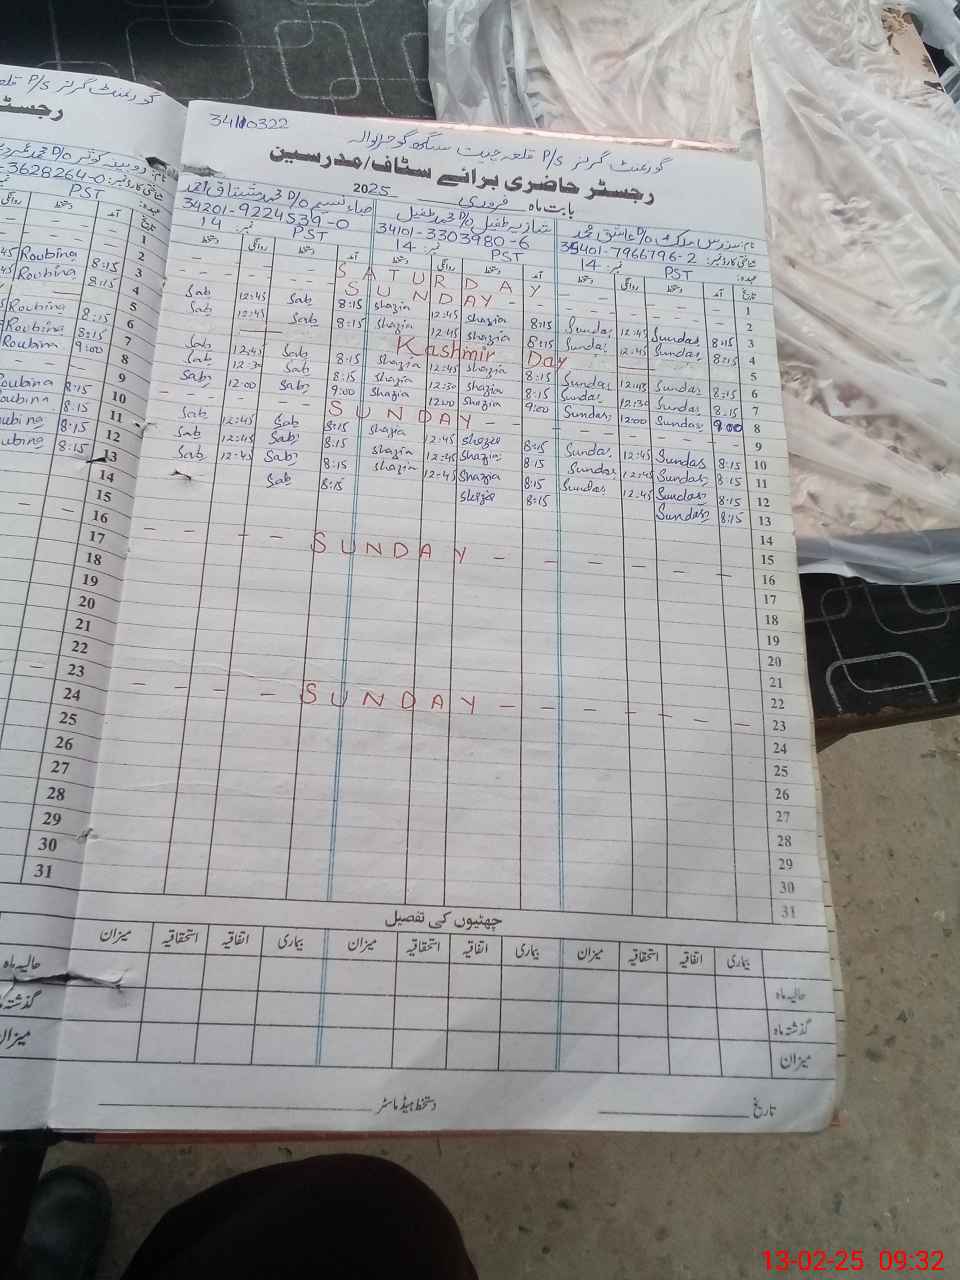 34110322
گورنمنٹ گرلز P/S قلعہ چیت سنگھ گوجرانوالہ
رجسٹر حاضری برائے سٹاف/مدرسین
بابت ماہ فروری 2025
نام: سندس ملک D/o عاشق محمد
شازیہ طفیل D/o محمد طفیل
صباء نسیم D/o محمد مشتاق احمد
شناختی کارڈ نمبر: 34401-7966796-2
34101-3303980-6
34201-9224539-0
عہدہ: PST نمبر: 14
PST نمبر: 14
PST نمبر: 14
تاریخ آمد دستخط روانگی دستخط آمد دستخط روانگی دستخط آمد دستخط روانگی دستخط
1 SATURDAY
2 SUNDAY
3 8:15 Sundas 12:45 Sundas 8:15 Shazia 12:45 Shazia 8:15 Sab 12:45 Sab
4 8:15 Sundas 12:45 Sundas 8:15 Shazia 12:45 Shazia 8:15 Sab 12:45 Sab
5 Kashmir Day
6 8:15 Sundas 12:45 Sundas 8:15 Shazia 12:45 Shazia 8:15 Sab 12:45 Sab
7 8:15 Sundas 12:30 Sundas 8:15 Shazia 12:30 Shazia 8:15 Sab 12:30 Sab
8 9:00 Sundas 12:00 Sundas 9:00 Shazia 12:00 Shazia 9:00 Sab 12:00 Sab
9 SUNDAY
10 8:15 Sundas 12:45 Sundas 8:15 Shazia 12:45 Shazia 8:15 Sab 12:45 Sab
11 8:15 Sundas 12:45 Sundas 8:15 Shazia 12:45 Shazia 8:15 Sab 12:45 Sab
12 8:15 Sundas 12:45 Sundas 8:15 Shazia 12:45 Shazia 8:15 Sab 12:45 Sab
13 8:15 Sundas 8:15 Shazia 8:15 Sab
14
15
16 SUNDAY
17
18
19
20
21
22
23 SUNDAY
24
25
26
27
28
29
30
31
چھٹیوں کی تفصیل
بیماری اتفاقیہ استحقاقیہ میزان بیماری اتفاقیہ استحقاقیہ میزان بیماری اتفاقیہ استحقاقیہ میزان
حالیہ ماہ
گذشتہ ماہ
میزان
تاریخ دستخط ہیڈ ماسٹر
گورنمنٹ گرلز P/S قلعہ
رجسٹر
نام: روبینہ کوثر D/o
شناختی کارڈ نمبر: 3628264-0
PST
1
2
3 8:15 Roubina
4 8:15 Roubina
5
6 8:15 Roubina
7 8:15 Roubina
8 9:00 Roubina
9
10 8:15 Roubina
11 8:15
12 8:15
13 8:15
14
15
16
17
18
19
20
21
22
23
24
25
26
27
28
29
30
31
حالیہ ماہ
گذشتہ ماہ
میزان
13-02-25 09:32